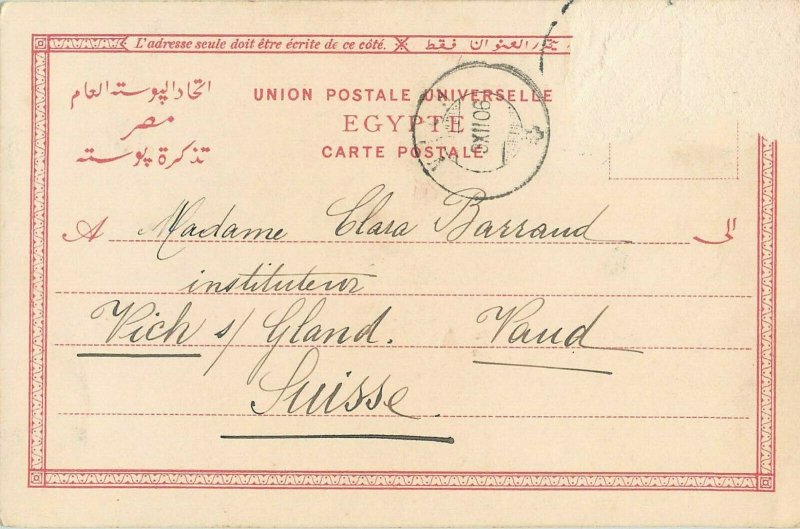 L'adresse seule doit être écrite de ce côté. العنوان فقط
اتحاد البوسته العام
UNION POSTALE UNIVERSELLE
مصر
EGYPTE
تذكرة بوسته
CARTE POSTALE
XII 06
A Madame Clara Barraud الى
instituteur
Vich s/ Gland. Vaud
Suisse.